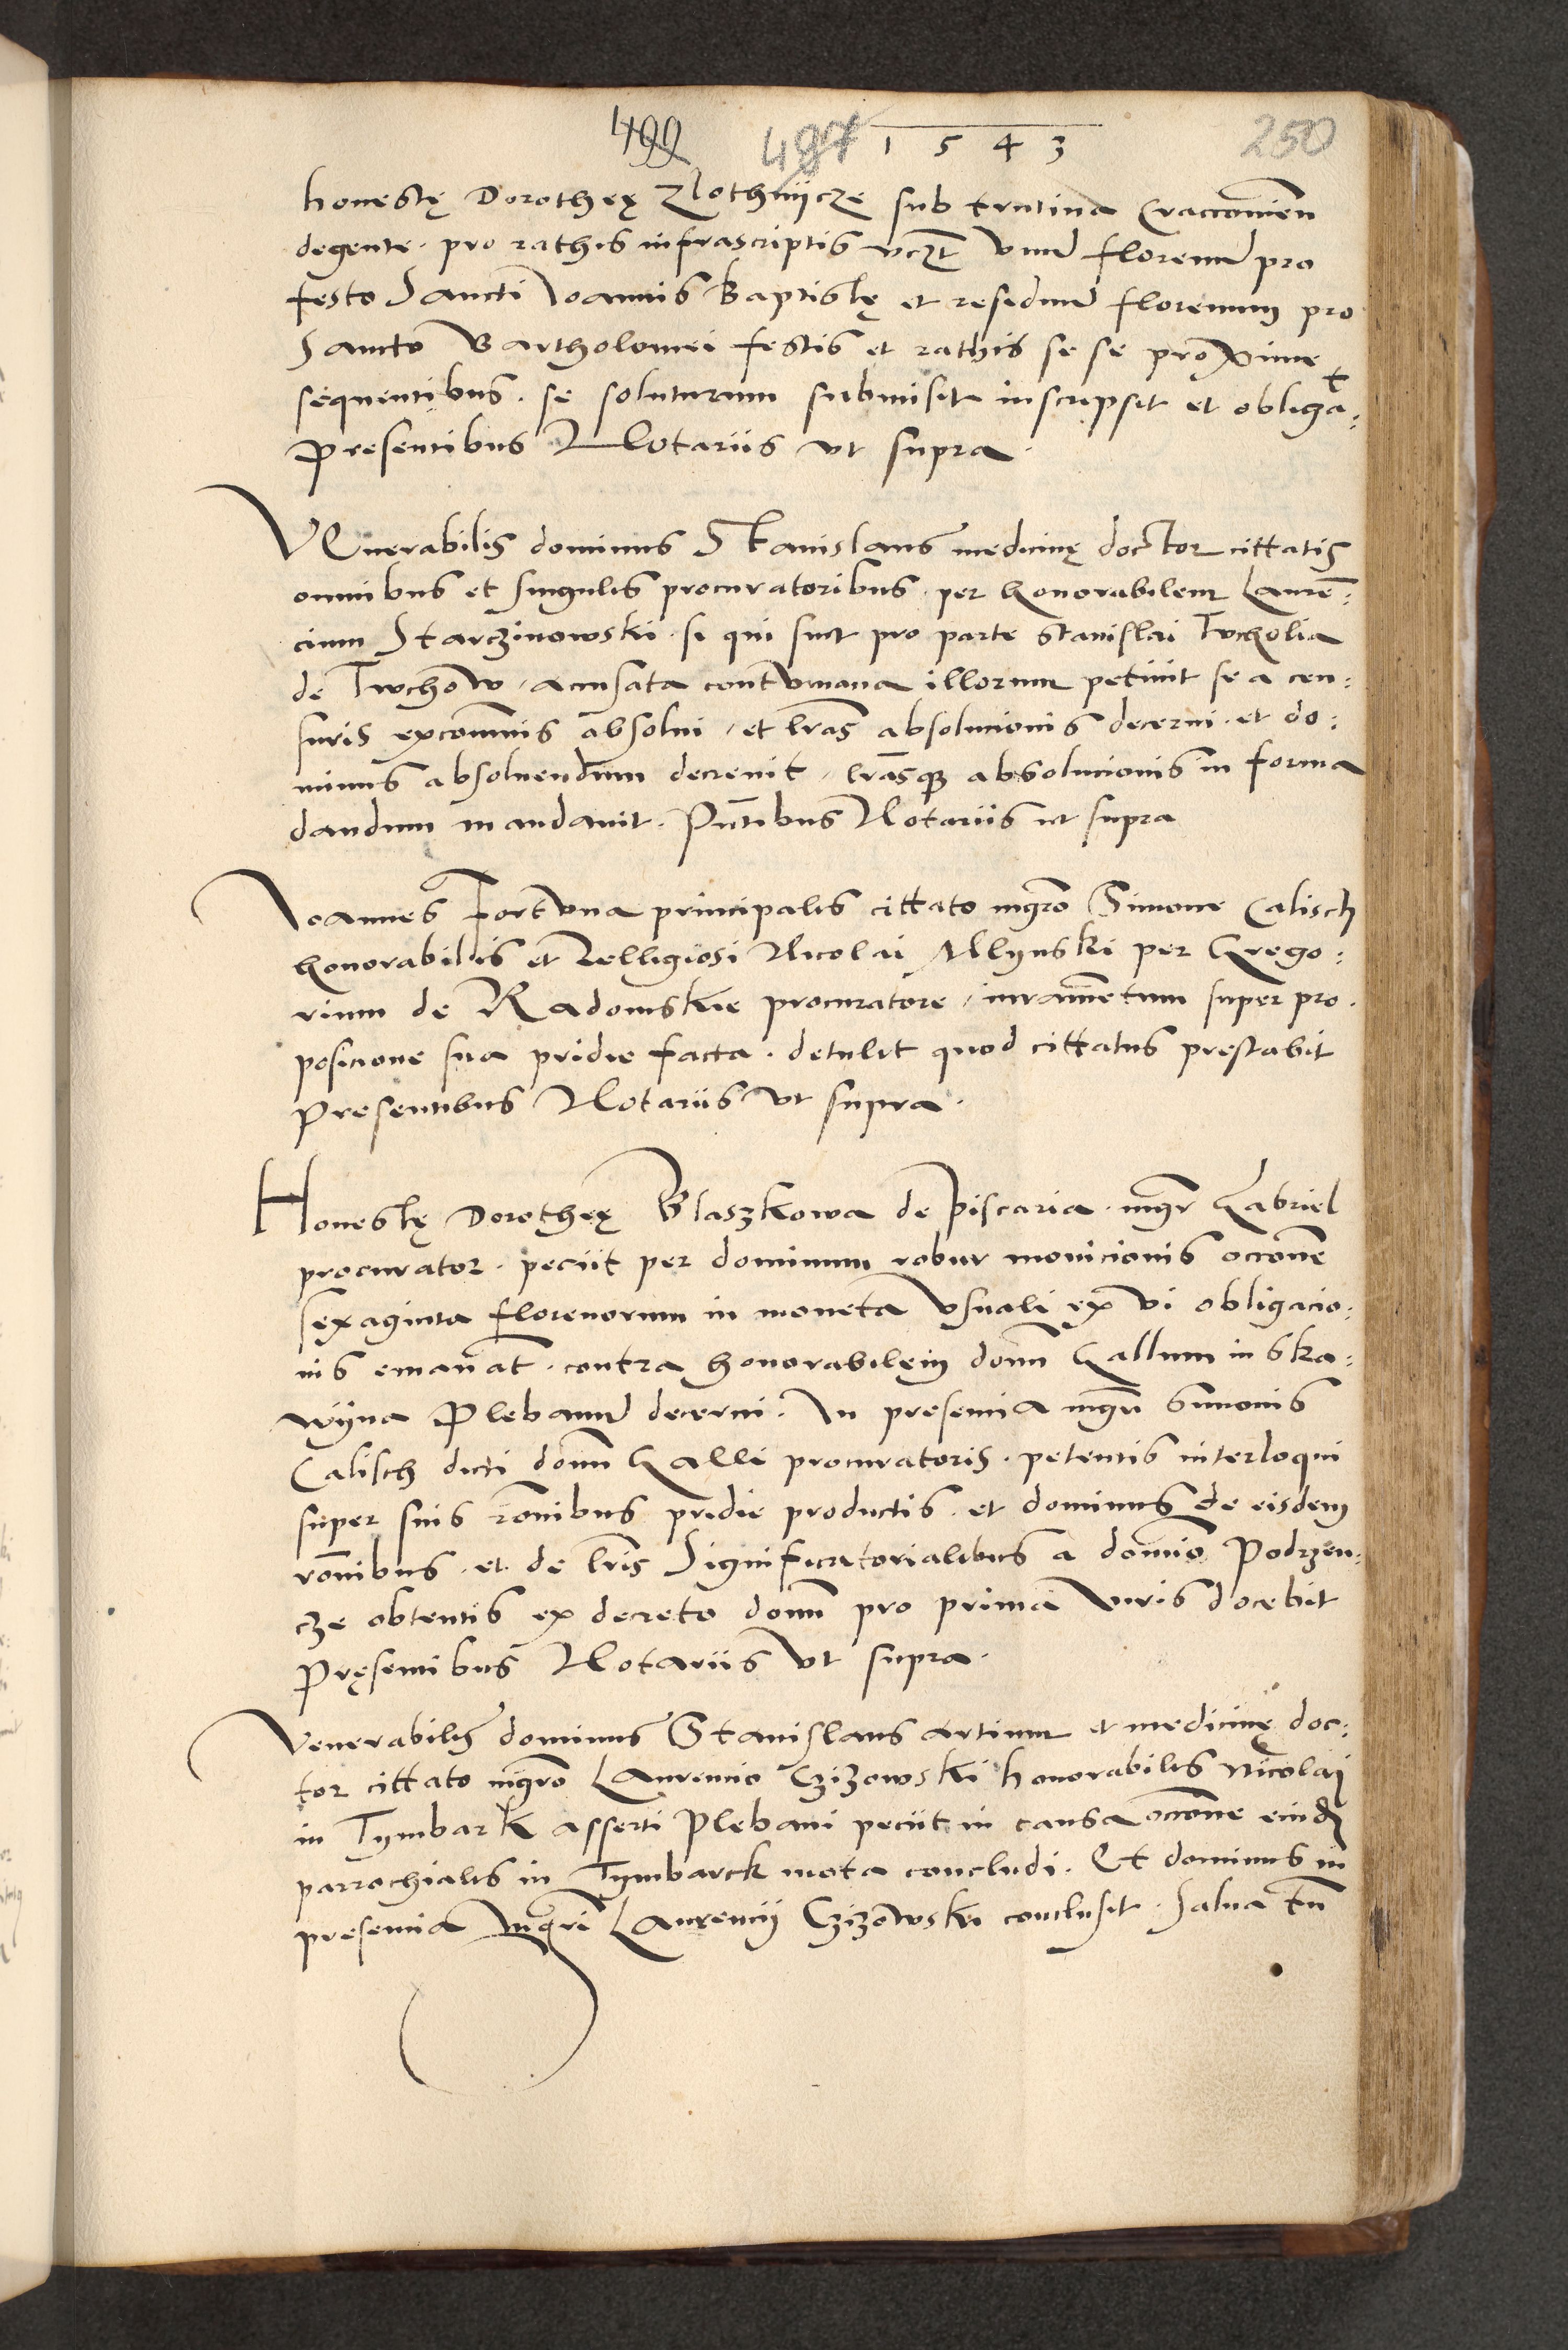 499 497 1543 250
honestę Dorotheę Zlothnijcze sub trutina Cracconien̄
degente . pro rathis infrascriptis vcꝫt vnu͂ florenu͂ pro
festo Sancti Ioannis Baptistę et residuu͂ florenum pro
Sancto Bartholomei festis et rathis se se proxime
sequentibus . se soluturum submisit inscripsit et obligat:
Presentibus Notariis vt supra .
VEnerabilis dominus Stanislaus medicinę doctor cittatis
omnibus et singulis procuratoribus . per honorabilem Lauren̄:
cium Starczinowski . si qui sunt pro parte Stanislai Tucholia
de Twchow , accusata contumacia illorum petiuit se a cen:
suris excom̄nis absolui , et lr̄as absolucionis decerni . et do:
minus absoluendum decreuit , lr̄asqꝫ absolucionis in forma
dandum mandauit . Pn̄tibus Notariis ut supra
Ioannes Fortuna principalis cittato mgr̄o Simone Calisch
honorabilis et Relligiosi Nicolai Mlynski per Grego:
rium de Radomskie procuratore , iuramentum super pro .
posicione sua pridie facta . detulit quod cittatus prestabit
Presentibus Notariis vt supra .
Honestę Dorotheę Blaszkowa de piscaria . mgr̄ Gabriel
procurator . peciit per dominum robur monicionis occōne
sexaginta florenorum in moneta vsuali ex vi obligacio:
nis emanāt . contra honorabilem dom̄ Gallum in Ska:
wijna Plebanu͂ decerni . In presencia mgr̄i Simonis
Calisch dicti dom̄ Galli procuratoris . petentis interloqui
super suis rōnibus pridie productis . et dominus de eisdem
rōnibus . et de lr̄is Significatorialibus a domi̅o Podrzen:
cze obtentis ex decreto dom̄ pro prima iuris docebit
Pręsentibus Notariis vt supra .
Venerabilis dominus Stanislaus artium et medicinę doc:
tor cittato mgr̄o Laurencio Czizowski honorabilis Nicolai
in Tymbark asserti Plebani peciit in causa occōne eiusdem
parrochialis in Tymbarck mota concludi . Et dominus in
presencia mgr̄i Laurencij Czizowski conclusit . salua tn̄